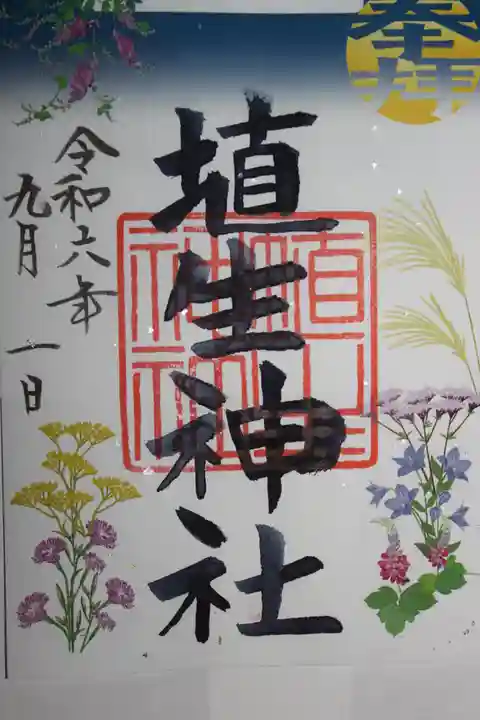 奉拝
埴生神社
令和六年
九月一日